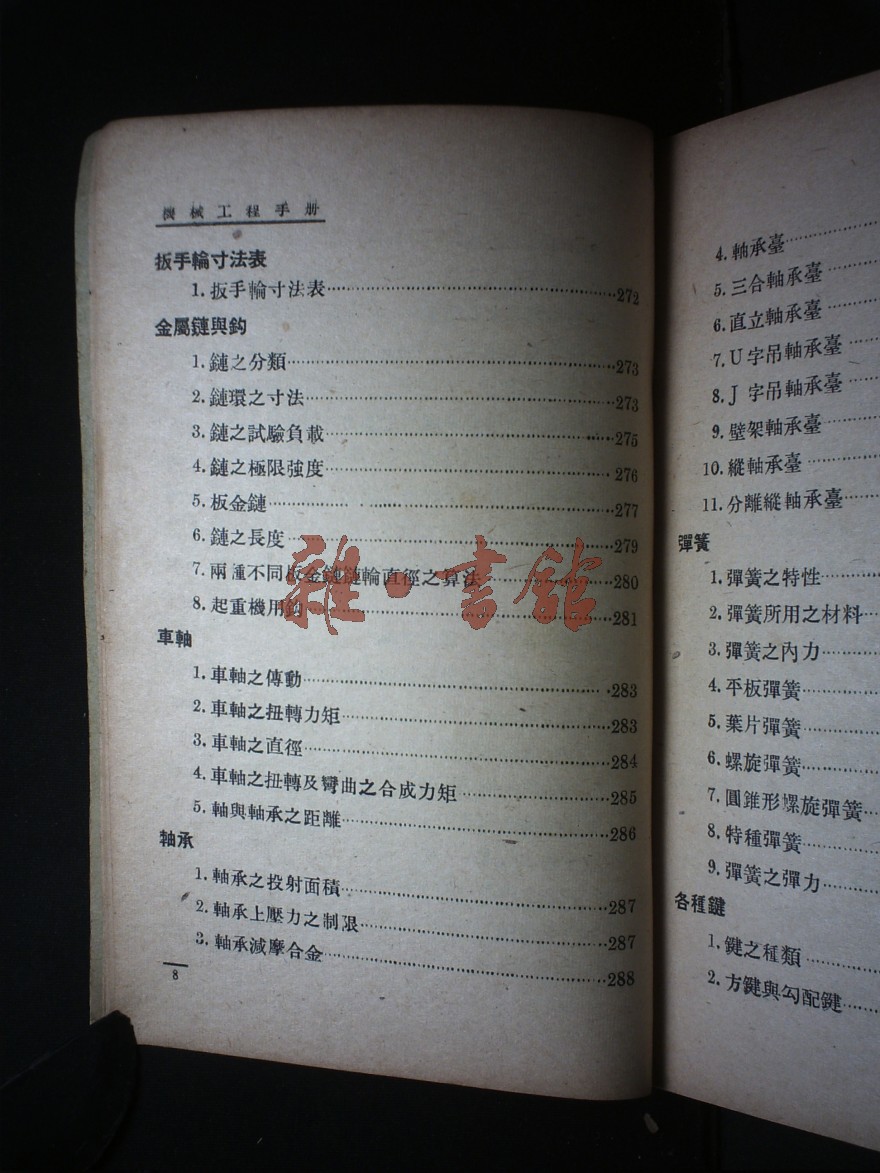 機械工程手册
扳手輪寸法表
1. 扳手輪寸法表……272
金屬鏈與鈎
1. 鏈之分類……273
2. 鏈環之寸法……273
3. 鏈之試驗負載……275
4. 鏈之極限強度……276
5. 板金鏈……277
6. 鏈之長度……279
7. 兩種不同板金鏈鏈輪直徑之算法……280
8. 起重機用鈎……281
車軸
1. 車軸之傳動……283
2. 車軸之扭轉力矩……283
3. 車軸之直徑……284
4. 車軸之扭轉及彎曲之合成力矩……285
5. 軸與軸承之距離……286
軸承
1. 軸承之投射面積……287
2. 軸承上壓力之制限……287
3. 軸承減摩合金……288
8
雜·書館
4. 軸承臺……
5. 三合軸承臺……
6. 直立軸承臺……
7. U字吊軸承臺……
8. J字吊軸承臺……
9. 壁架軸承臺……
10. 縱軸承臺……
11. 分離縱軸承臺……
彈簧
1. 彈簧之特性……
2. 彈簧所用之材料……
3. 彈簧之內力……
4. 平板彈簧……
5. 葉片彈簧……
6. 螺旋彈簧……
7. 圓錐形螺旋彈簧……
8. 特種彈簧……
9. 彈簧之彈力……
各種鍵
1. 鍵之種類……
2. 方鍵與勾配鍵……